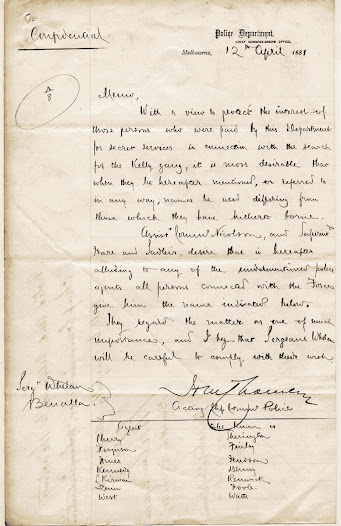 Confidential
Police Department,
CHIEF COMMISSIONER'S OFFICE,
Melbourne, 12th April 1881
A/8
Memo,
With a view to protect the interest of
those persons who were paid by this Department
for secret services in connection with the search
for the Kelly gang, it is most desirable that
when they be hereafter mentioned, or referred to
in any way, names be used differing from
those which they have hitherto borne.
Assist Commr Nicolson, and Superintdts
Hare and Sadleir, desire that in hereafter
alluding to any of the undermentioned police
agents all persons connected with the Force
give him the name indicated below.
They regard the matter as one of much
importance, and I beg that Sergeant Whelan
will be careful to comply with their wish
Sergt Whelan
Benalla
Acting Chf Commr Police
Agent
Sherry Sherrington
Ferguson
Jones
Kennedy Denny
Kirwan Renwick
Foote
West Watts